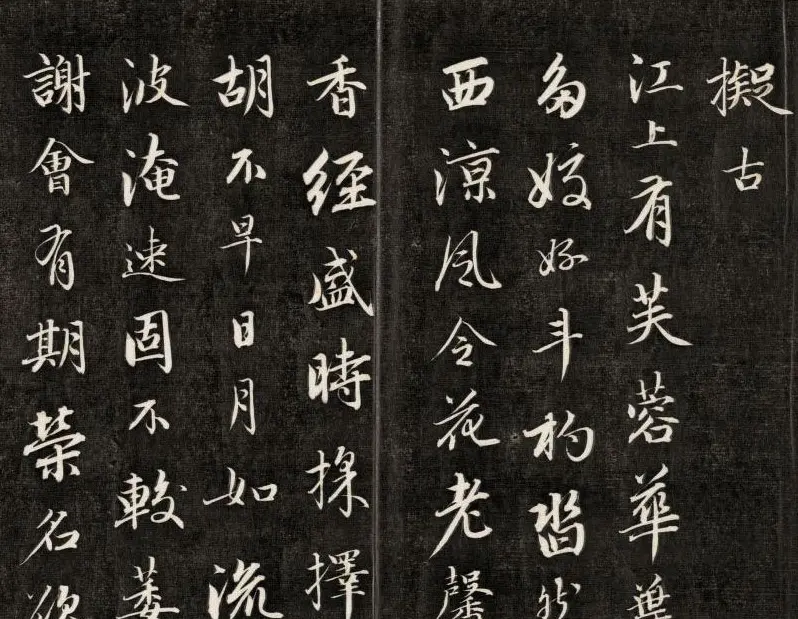 擬古
江上有芙蓉華葉
多姣好斗杓然
西涼風令花老馨
香經盛時採擇
胡不早日月如流
波淹速固不較萎
謝會有期榮名